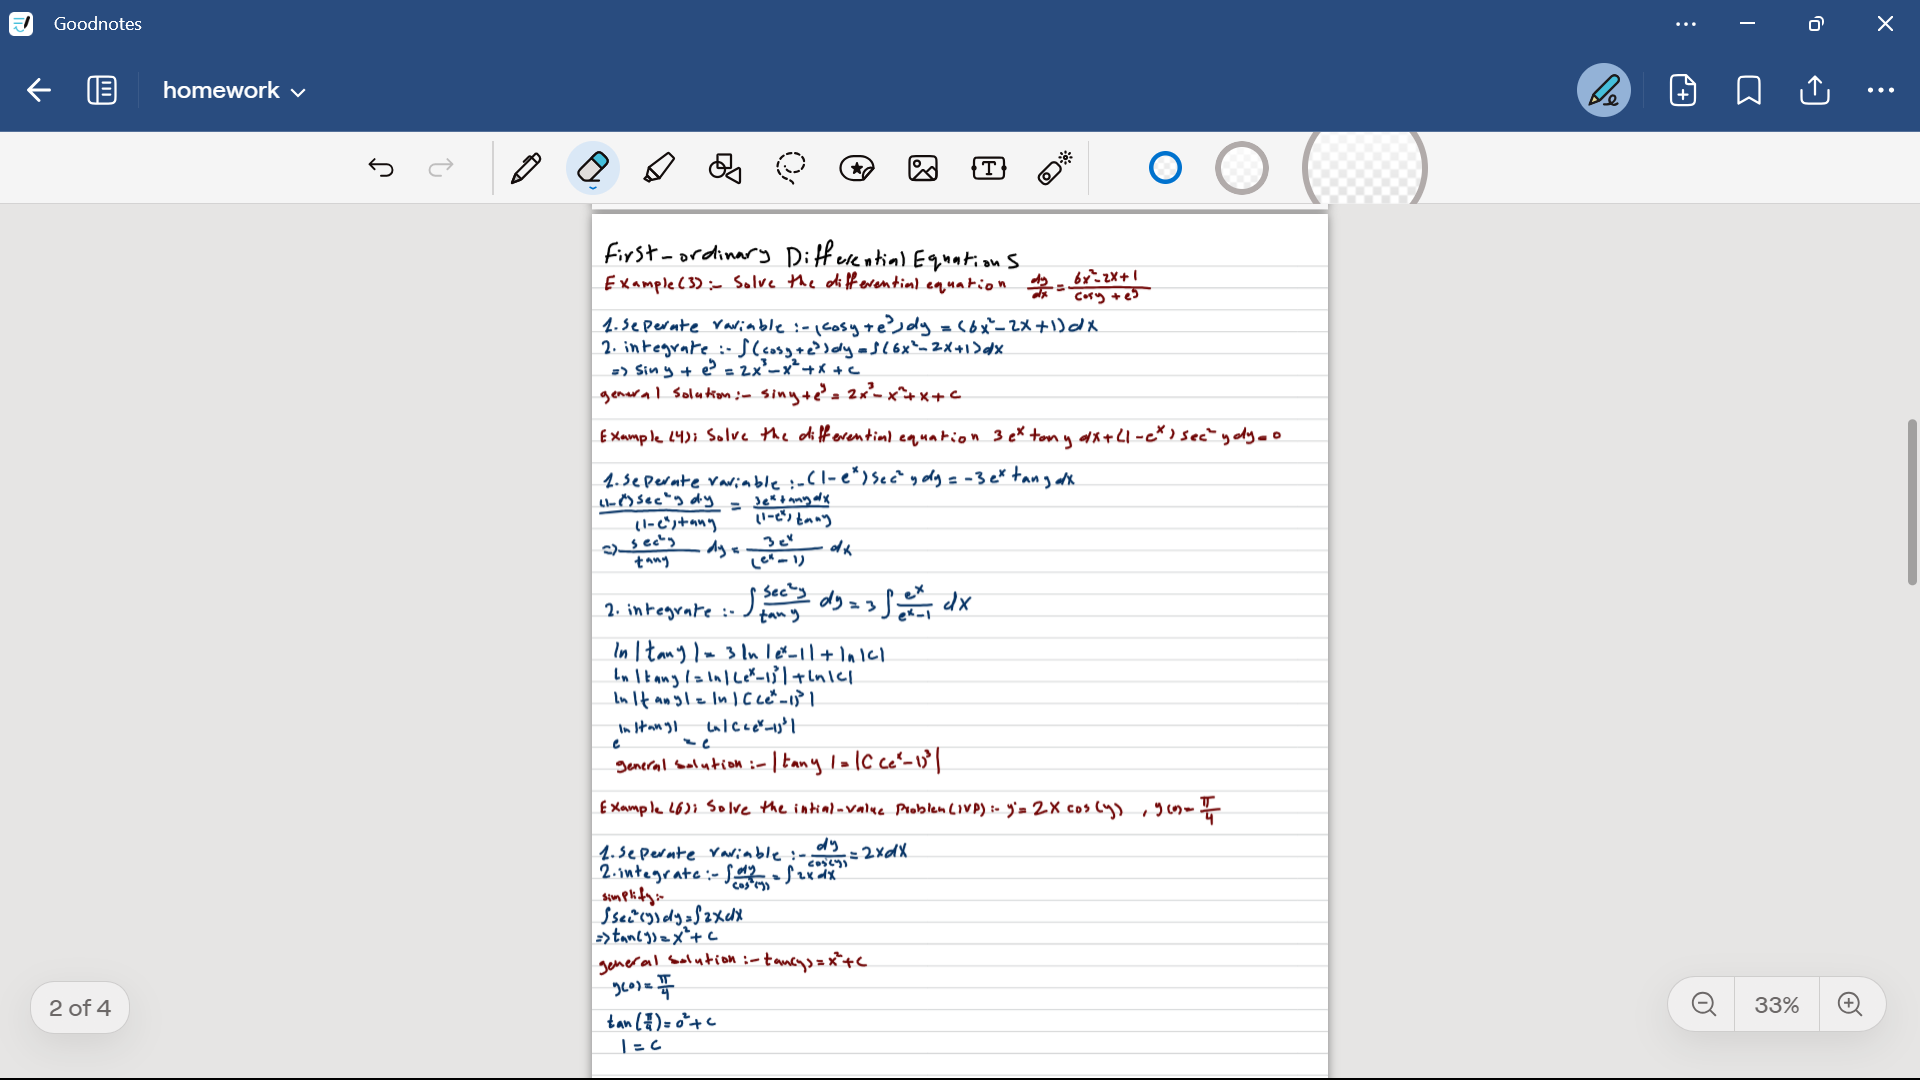 Goodnotes
homework
First-ordinary Differential Equations
Example(3):- Solve the differential equation dy/dx = 6x²-2x+1/cosy+e^y
1. Seperate variable :- (cosy+e^y)dy = (6x²-2x+1)dx
2. integrate :- ∫(cosy+e^y)dy=∫(6x²-2x+1)dx
=> siny + e^y = 2x³-x²+x+c
general solution:- siny+e^y = 2x³-x²+x+c
Example (4): Solve the differential equation 3e^x tany dx+(1-e^x) sec²y dy=0
1. Seperate variable :- (1-e^x)sec²y dy = -3e^x tany dx
(1-e^x)sec²y dy/(1-e^x)tany = 3e^x tany dx/(1-e^x)tany
=> sec²y/tany dy = 3e^x/(e^x-1) dx
2. integrate :- ∫ sec²y/tany dy = 3∫ e^x/e^x-1 dx
ln|tany| = 3 ln|e^x-1| + ln|c|
ln|tany| = ln|(e^x-1)³| + ln|c|
ln|tany| = ln|C(e^x-1)³|
e^ln|tany| = e^ln|C(e^x-1)³|
general solution :- |tany| = |C(e^x-1)³|
Example (6): Solve the intial-value Problem(IVP):- y'= 2x cos(y) , y(0)= π/4
1. Seperate variable :- dy/cos(y) = 2xdx
2. integrate :- ∫dy/cos²(y) = ∫2xdx
simplify:-
∫sec²(y)dy=∫2xdx
=> tan(y) = x²+c
general solution :- tan(y) = x²+c
y(0)= π/4
tan(π/4)= 0²+c
1 = c
2 of 4
33%